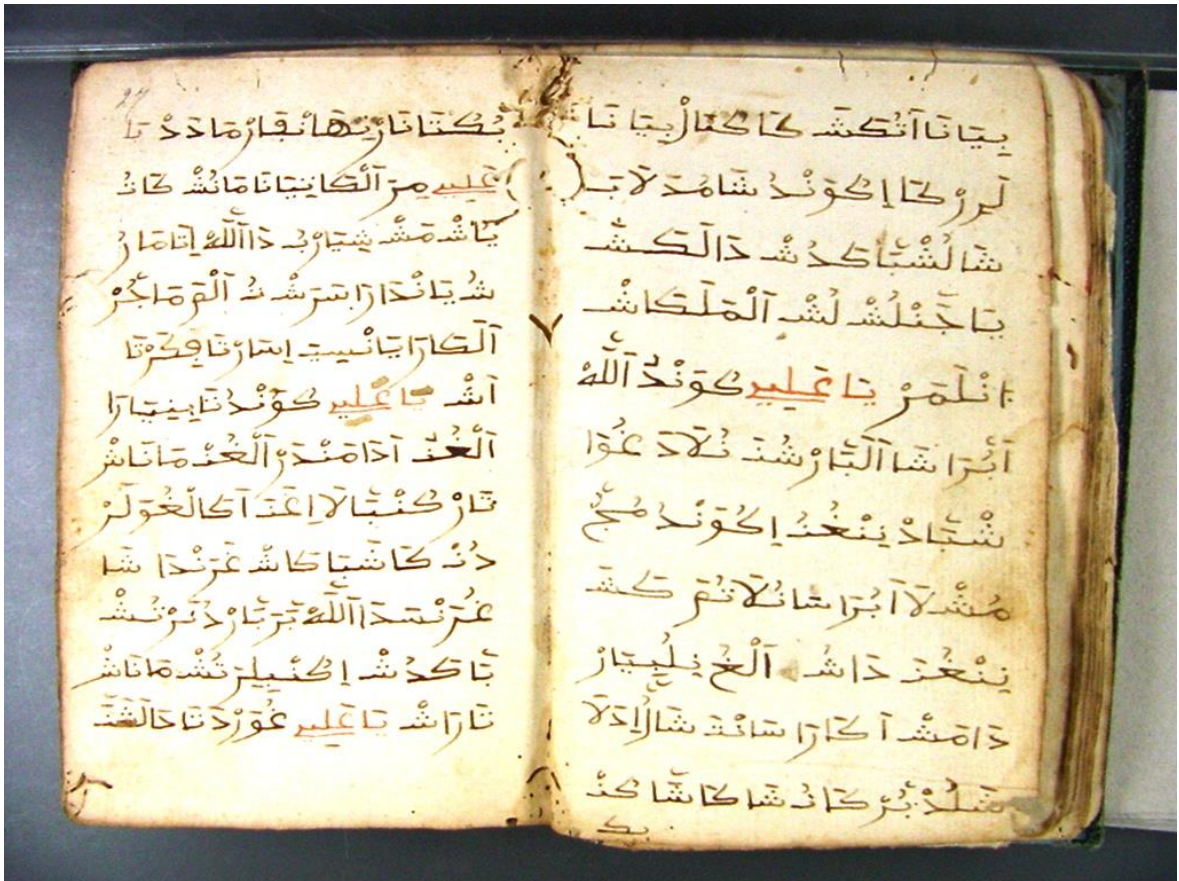 بِيَانَا اَنُكَشَ كَا كُنَالْ بِيَانَا
لَرِرْ كَا إِكُوَنْدُ شَامُدَ لَابَ
شَا لُشْبَّاكَدُشْ دَا لَكَشَّ
يَا جَّنْلُشْ لُشْ اَلْمَلَكَاشْ
اِنْلَمَرْ يَا عَلِي كُوَنْدُ اَللَّهْ
اَبُّرَا شَا اَلَبَّارْشُنَ نُلَادَ غُوَا
شْبَّادْ نِنْغُنُ إِكُوَنْدُ مُجُّ
مُشْ لَا اَبُرَا سَا نُلَا تُمَ كَشَ
نِنْغُنَ دَاشُ اَلْغُ نِلُبِيَارْ
دَا مَشْ اَكَارَا سَانْتَ شَالُ إِدَلَا
شَلُدْ بُرْ كَانُ شَا كَاشَّا كُنْ
27
بُكُنَانَارْ نِهَانْبَارْ مَادَدْ نَا
عَلِي مِرَ اَلْكَا نِيَانَا مَانُشْ كَانُ
يَاشْ مَشْ شِيَارْبُ دَا اَللَّهْ اِنَامَارُ
شُيَانْدَارَا سَرَشْ نُ اَلْمَ مَاجُرْ
اَلَكَارَا يَانْسِبَ اِسَارْ تَافِكَرْتَا
اَشْ يَا عَلِي كُوَنْدُ تَا بِينِيَارَا
اَلْغُنُ اَدَامَنْدَرْ اَلْغُنَ مَانَاشْ
تَارْ كُنْبَّالَا إِغَنَ اَكَالْغُوَلَرْ
دُنْ كَاشْيَا كَاشْ غَرَنْدَا شَا
غُرَنْسَدَا اَللَّهْ بَرَبَارْدُنَرْتُشْ
بَّاكَدُشْ إِكُنْبِلِرْتُشْ مَانَاشْ
تَارَاشْ يَا عَلِي غُوَرْدَتَا دَالَشَنَ